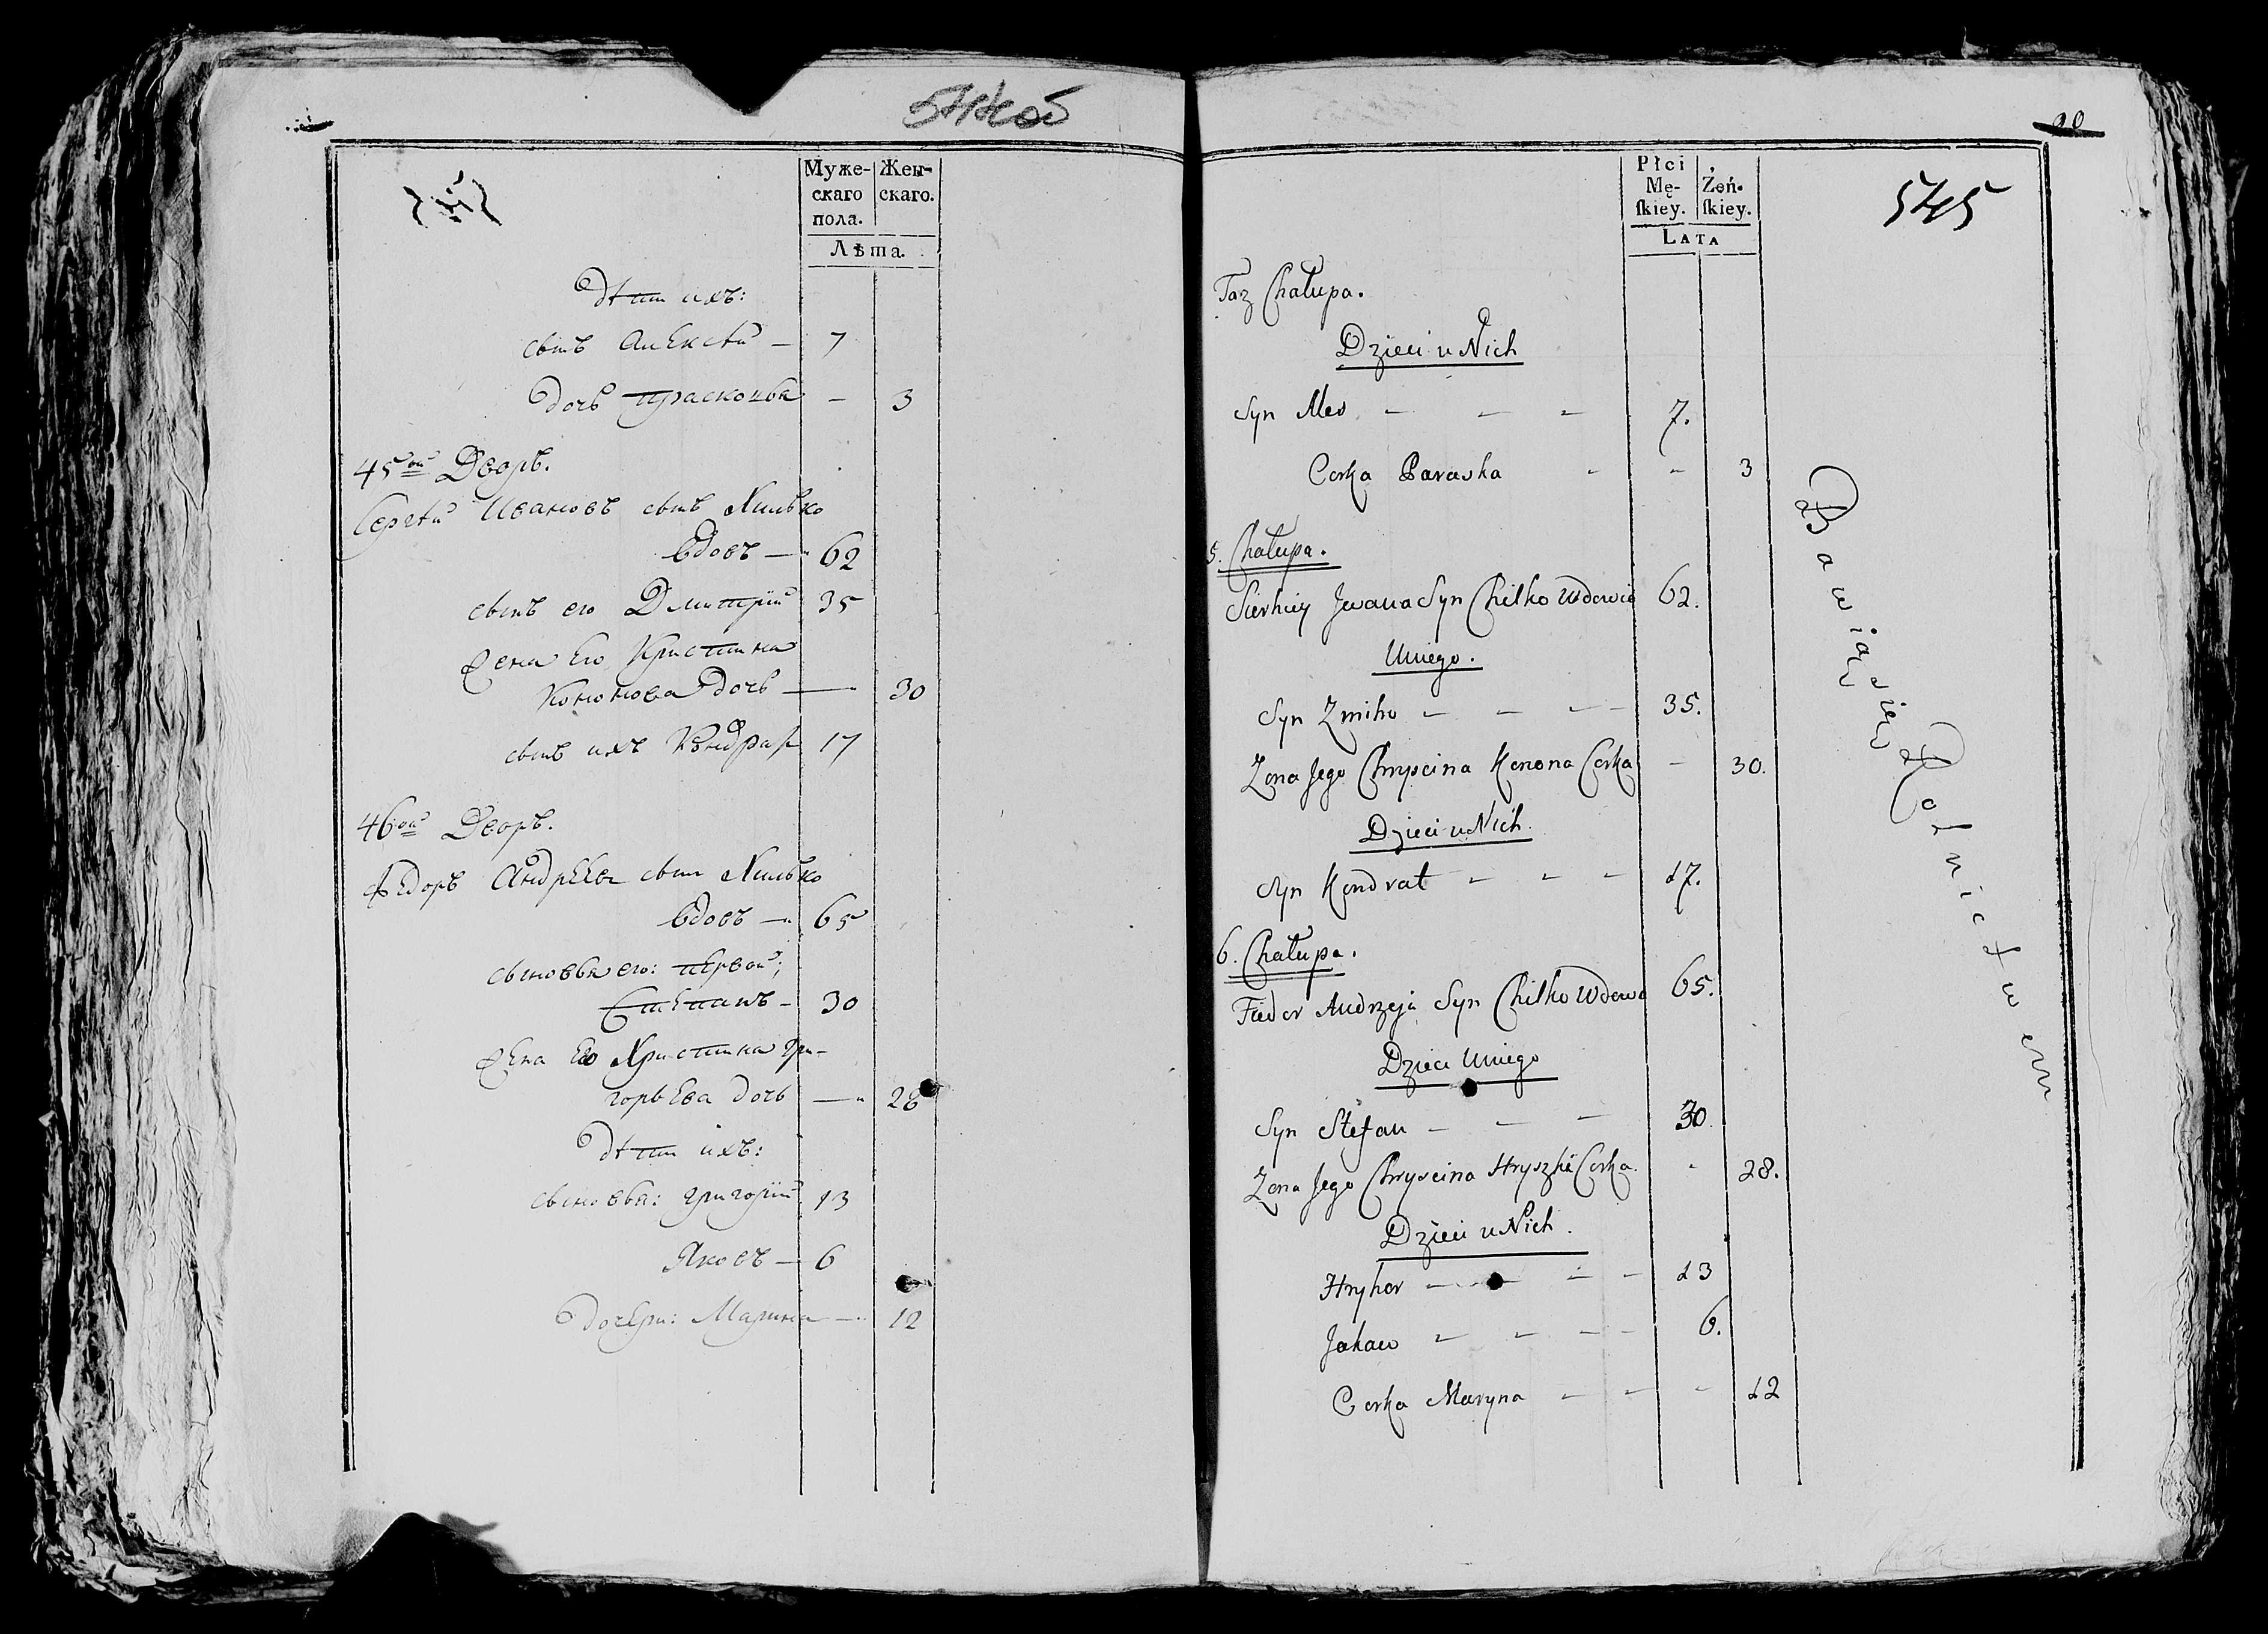 544об
Муже-
скаго
пола.
Жен-
скаго.
Лѣта.
Дѣти ихъ:
сынъ Алексѣй — 7
Дочь Прасковья — 3
45ой Дворъ.
Сергѣй Ивановъ сынъ Хилько
вдовъ — 62
сынъ его Дмитрій 35
Жена Его Христина
Кононова дочь — 30
сынъ ихъ Кондрат 17
46ой Дворъ.
Федоръ Андрѣевъ сынъ Хилько
вдовъ — 65
сыновья его: первой;
Степанъ — 30
Жена Его Христина Гри-
горьева дочь — 28
Дѣти ихъ:
сыновья: Григорій 13
Яковъ — 6
Дочери: Марина — 12
20
545
Płci
Mę-
skiey.
Żeń-
skiey.
Lata
Taz Chałupa.
Dzieci u Nich
Syn Alexs — — — 7.
Corka Paraska - - 3
5. Chałupa.
Sierhiey Jwana Syn Chilko Wdowiec 62.
U niego.
Syn Zmiho — — — 35.
Zona Jego Chryscina Konona Corka - 30.
Dzieci u Nich.
Syn Kondrat - - - 17.
6. Chałupa.
Fiedor Andrzeja Syn Chilko Wdowc 65.
Dzieci U niego
Syn Stefan — — — 30.
Zona Jego Chryscina Hryszki Corka. - 28.
Dzieci u Nich.
Hryhor — — — 13
Jakaw - - - - 6.
Corka Maryna - - - 12
Bawią się Rolnictwem